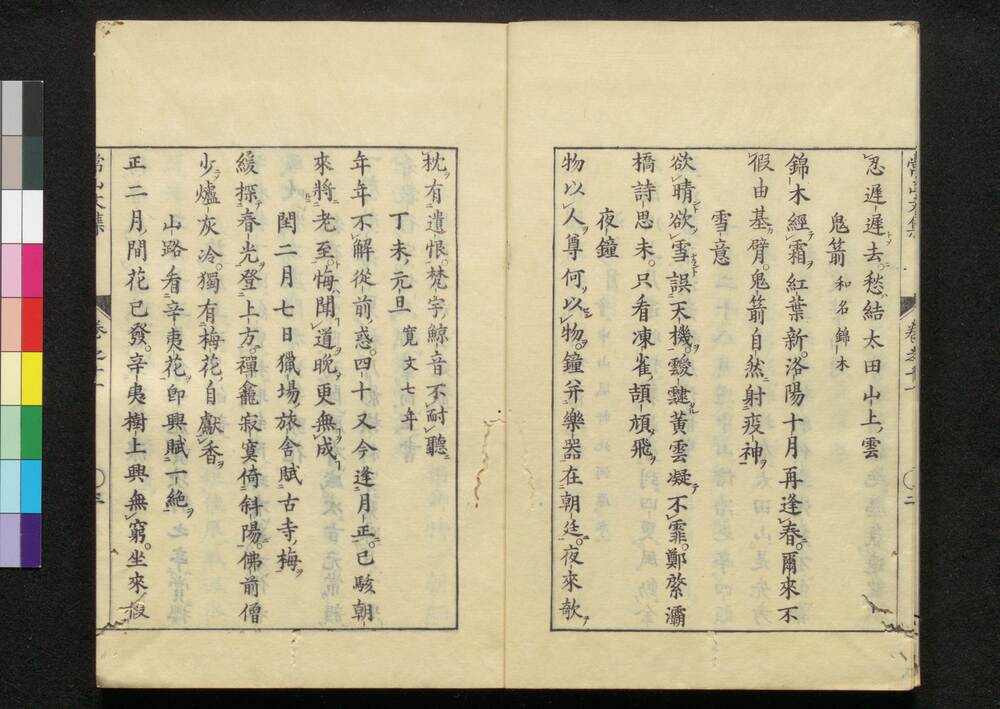 忍遲遲去。愁結太田山上雲
鬼箭 和名錦木
錦木經霜紅葉新。洛陽十月再逢春。爾來不
假由基臂。鬼箭自然射疫神
雪意
欲晴欲雪誤天機。靉靆黃雲凝不霏。鄭綮灞
橋詩思未。只看凍雀頡頏飛
夜鐘
物以人尊何以物。鐘幷樂器在朝廷。夜來欹
枕有遺恨。梵宇鯨音不耐聽
丁未元旦 寬文七年
年年不解從前惑。四十又今逢月正。已駭朝
來將老至。悔聞道晚更無成
閏二月七日獵場旅舍賦古寺梅
緩探春光登上方。禪龕寂寞倚斜陽。佛前僧
少爐灰冷。獨有梅花自獻香
山路看辛夷花卽興賦二絶
正二月間花已發。辛夷樹上興無窮。坐來
常山文集